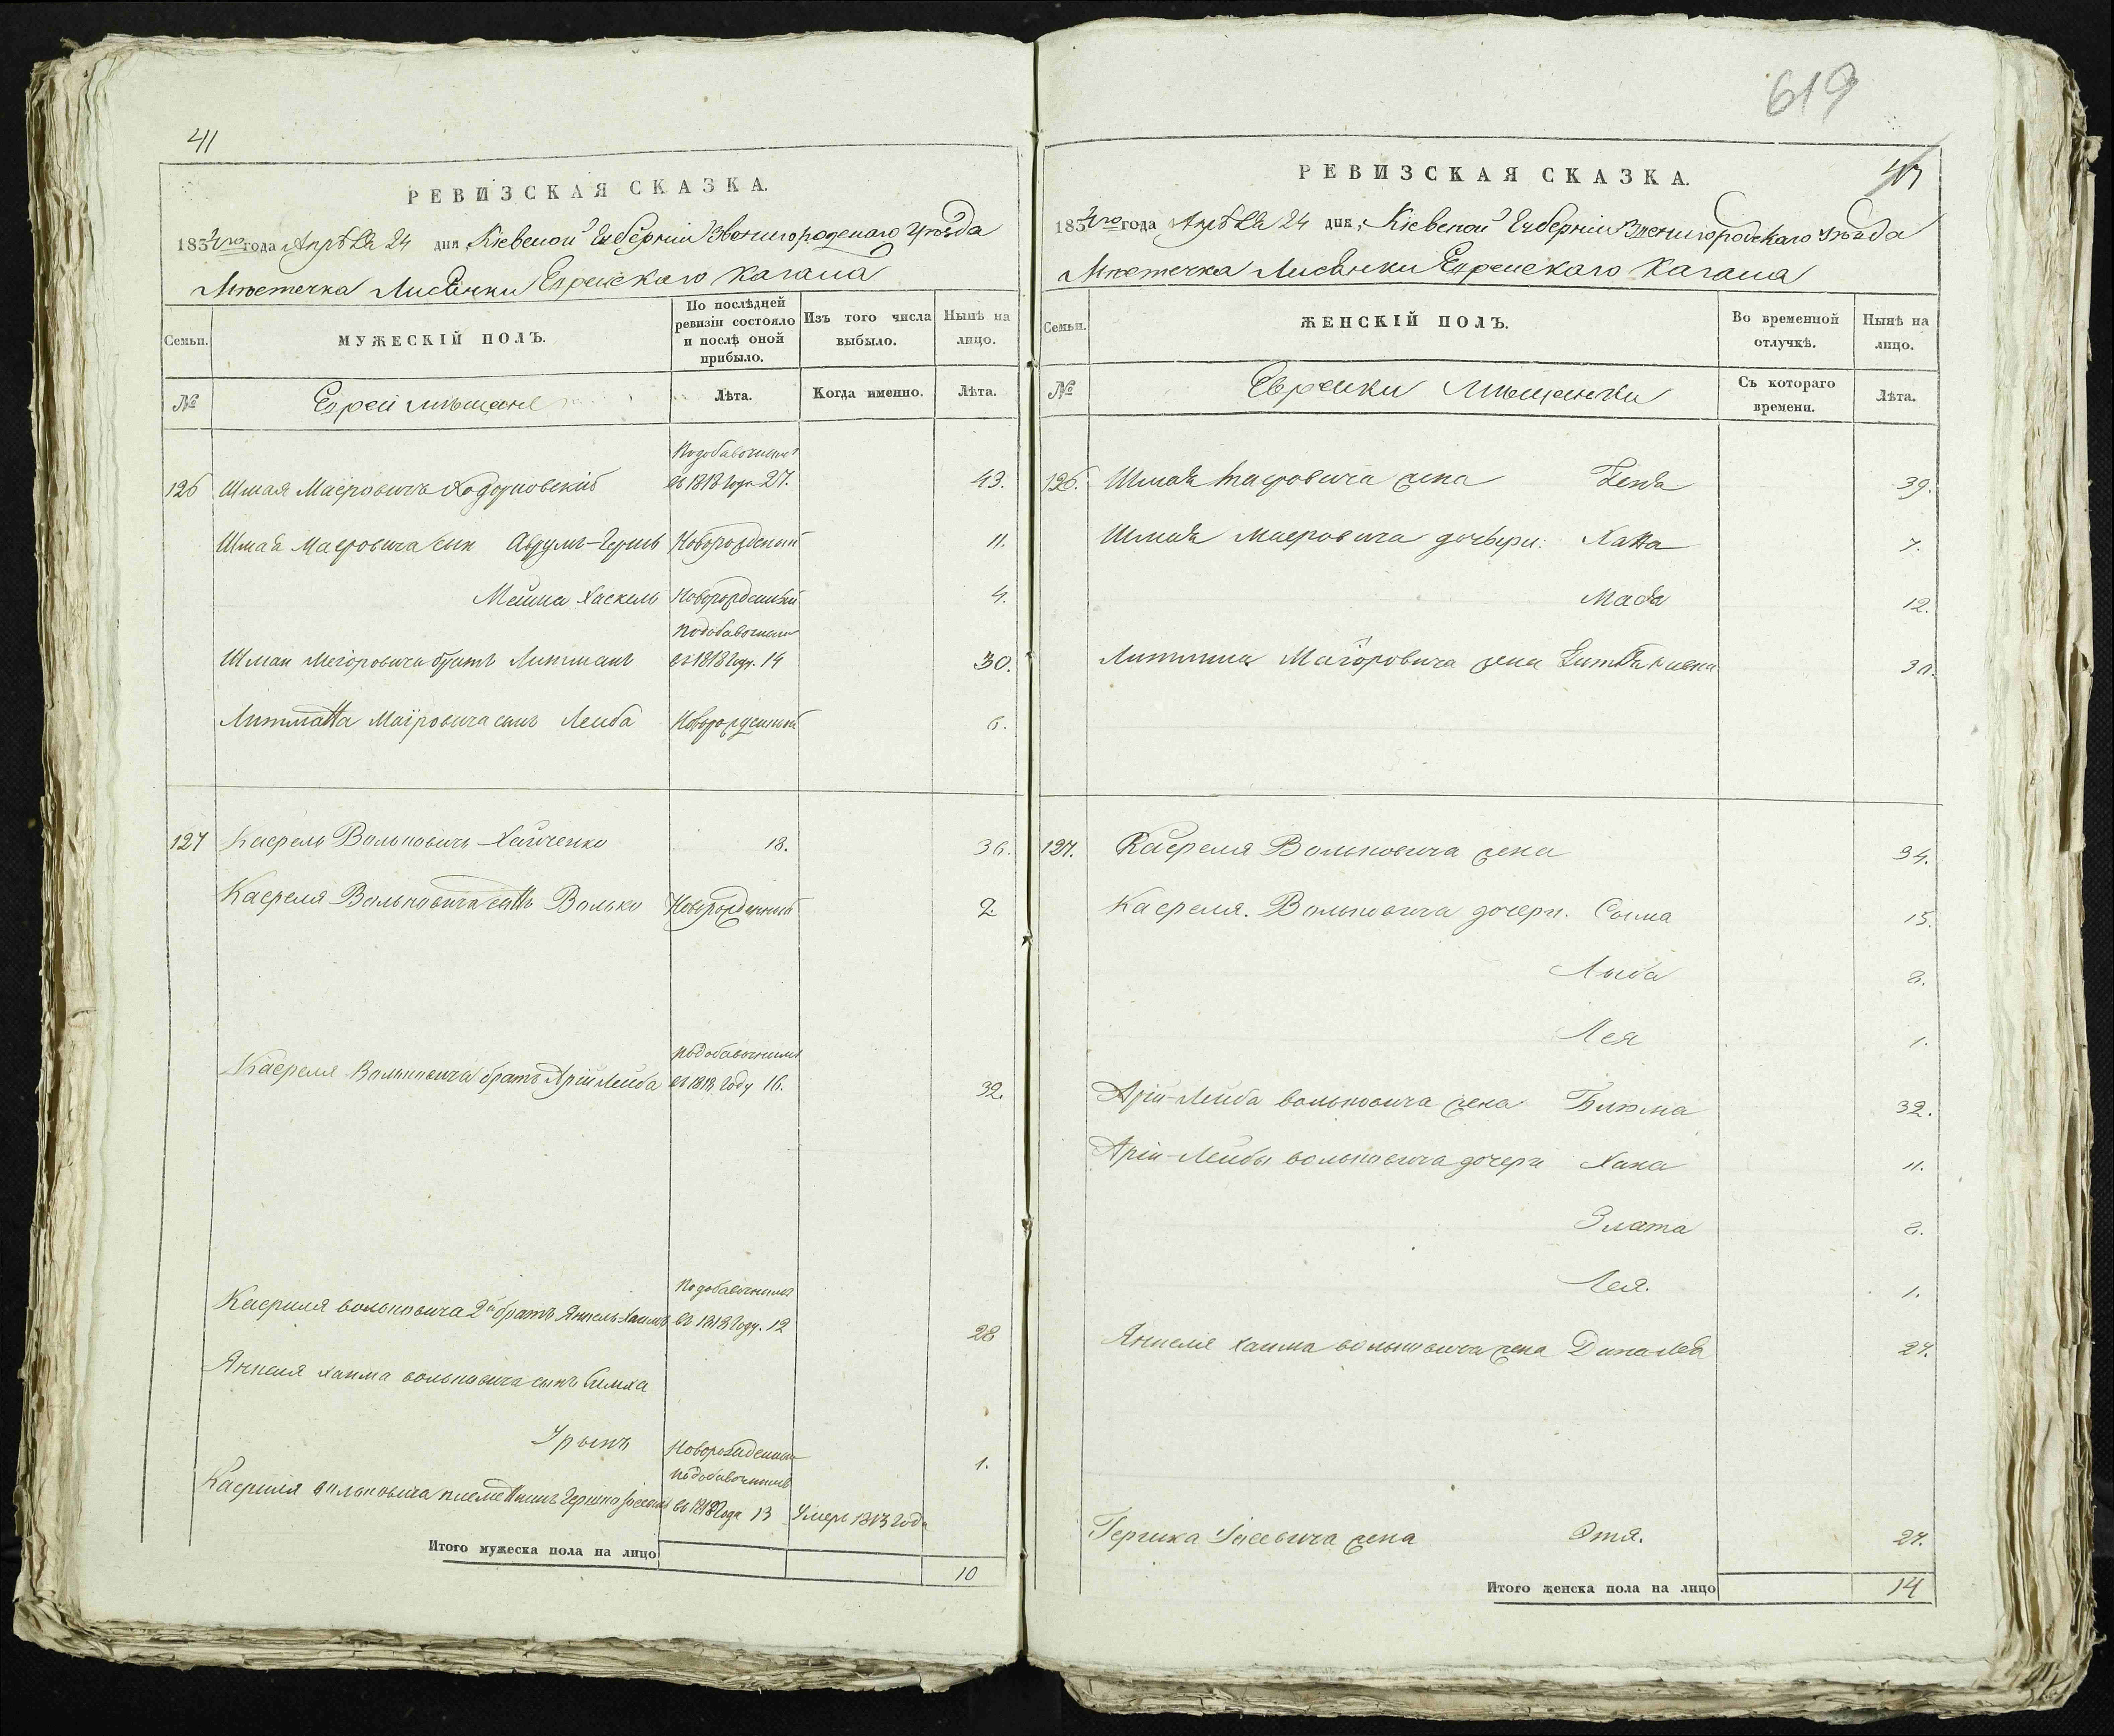 41
РЕВИЗСКАЯ СКАЗКА.
1834го года Апрѣля 24 дня Кіевской Губерніи Звенигородскаго уѣзда
Мѣстечка Лисянки Еврейскаго Кагала
Семьи.
МУЖЕСКІЙ ПОЛЪ.
По послѣдней ревизіи состояло и послѣ оной прибыло.
Изъ того числа выбыло.
Нынѣ на лицо.
№
Евреи мѣщане
Лѣта.
Когда именно.
Лѣта.
Подобавочнымъ
126 Шмая Маёровичъ Ходорковскій въ 1818 году 27. 43.
Шмая Маеровича сын Аврумъ-Гершъ Новорожденный 11.
Хаскель Новорожденный 4.
Подобавочнымъ
Шмаи братъ Литманъ въ 1818 году. 14 30.
Литмана Маіровича сынъ Лейба Новорожденный 6.
127 Касрель Вольковичъ 18. 36.
Касреля Вольковича сынъ Волько Новорожденный 2.
Подобавочнымъ
Касреля Вольковича братъ Арій Лейба въ 1818 году 16. 32.
Подобавочнымъ
Касриля Вольковича 2й братъ Янкель-Хаимъ въ 1818 году. 12 28
Янкеля Хаима Вольковича сынъ Симха
Новорожденный 1.
Подобавочнымъ
Касриля Вольковича племянникъ Гершко въ 1818 года 13 Умеръ года
Итого мужеска пола на лицо 10
619
РЕВИЗСКАЯ СКАЗКА.
1834го года Апрѣля 24 дня, Кіевской Губерніи Звенигородскаго уѣзда
Мѣстечка Лисянки Еврейскаго Кагала
Семьи.
ЖЕНСКІЙ ПОЛЪ.
Во временной отлучкѣ.
Нынѣ на лицо.
№
Еврейки Мѣщанки
Съ котораго времени.
Лѣта.
126. Шмая Маеровича жена 39.
Шмая Маеровича дочери: Ханна 7.
12.
Литмана жена 30.
127. Касреля Вольковича жена 34.
Касреля. Вольковича дочери. Сыма 15.
8.
Лея 1.
Арій-Лейба Вольковича жена Блюма 32.
Арій-Лейбы Вольковича дочери Хана 11.
Злата 8.
Лея. 1.
Янкеля Хаима Вольковича жена 27.
Гершка жена Этя. 27.
Итого женска пола на лицо 14